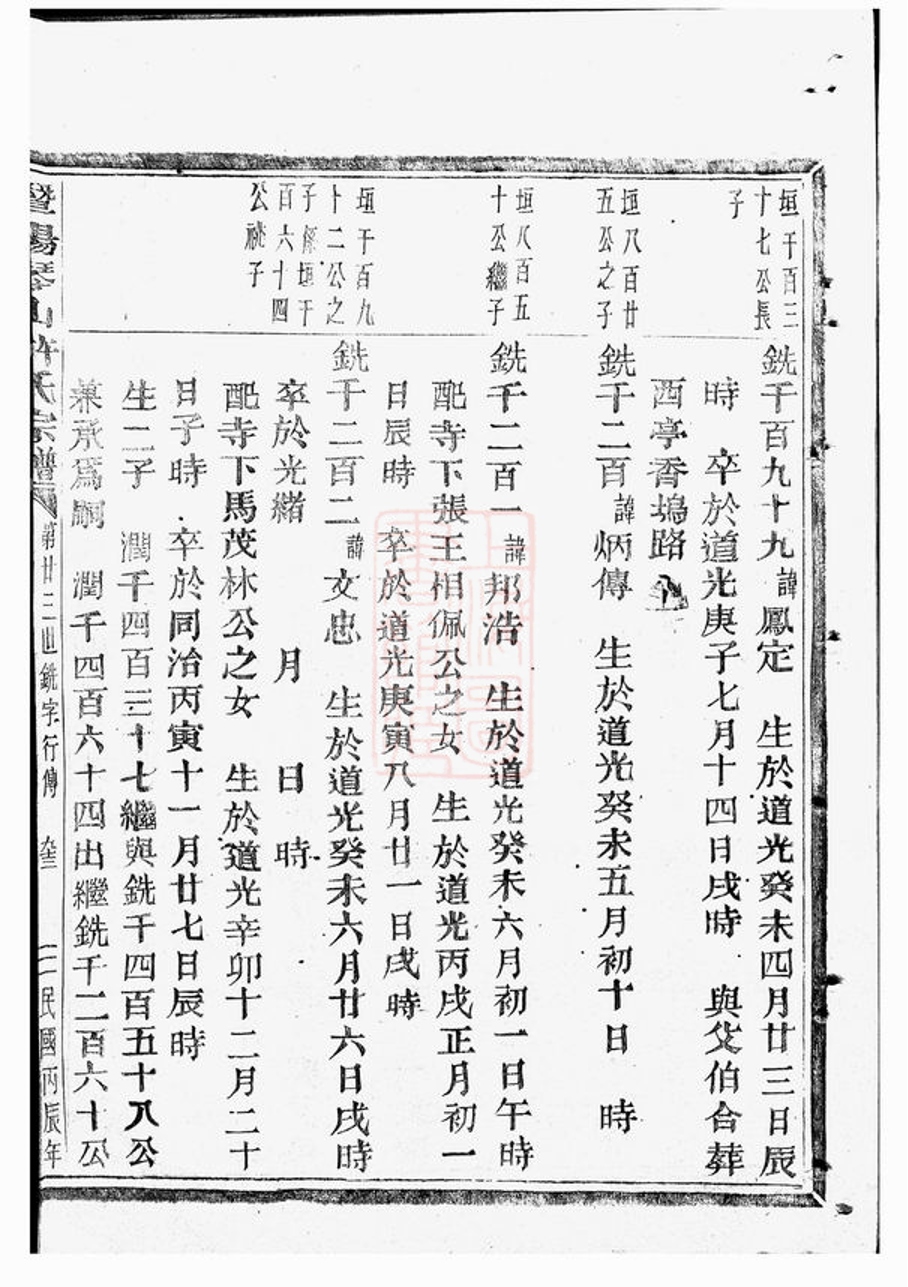 垣千百三
十七公長
子
銑千百九十九諱鳳定 生於道光癸未四月廿三日辰
時 卒於道光庚子七月十四日戌時 與父伯合葬
西亭香塢路
垣八百廿
五公之子
銑千二百諱炳傳 生於道光癸未五月初十日 時
垣八百五
十公繼子
銑千二百一諱邦浩 生於道光癸未六月初一日午時
配寺下張王相佩公之女 生於道光丙戌正月初一
日辰時 卒於道光庚寅八月廿一日戌時
垣千百九
十二公之
子係垣千
百六十四
公祧子
銑千二百二諱文忠 生於道光癸未六月廿六日戌時
卒於光緒 月 日 時
配寺下馬茂林公之女 生於道光辛卯十二月二十
日子時 卒於同治丙寅十一月廿七日辰時
生二子 潤千四百三十七繼與銑千四百五十八公
兼承爲嗣 潤千四百六十四出繼銑千二百六十公
暨陽琴山許氏宗譜 第廿三世銑字行傳 民國丙辰年